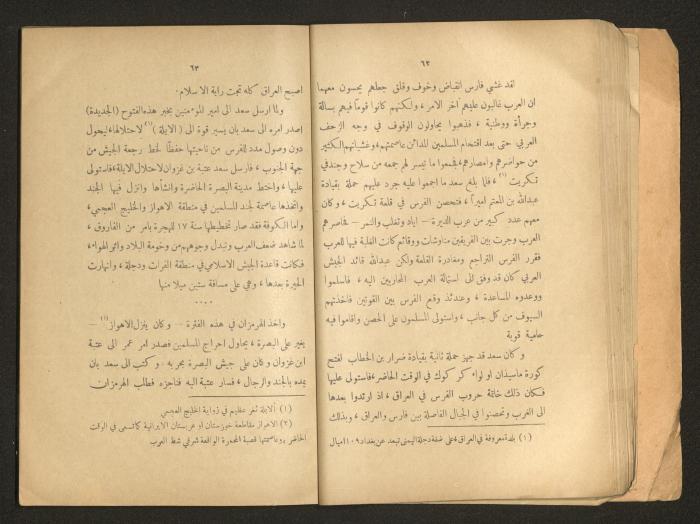 ٦٢
لقد غشي فارس انقباض وخوف وقلق جعلهم يحسون معهما
ان العرب غالبون عليهم آخر الامر ، ولكنهم كانوا قوماً فيهم بسالة
وجرأة ووطنية ، فذهبوا يحاولون الوقوف في وجه الزحف
العربي حتى بعد اقتحام المسلمين المدائن عاصمتهم ، وغشيانهم الكثير
من حواضرهم وامصارهم ، فجمعوا ما تيسر لهم جمعه من سلاح وجند في
تكريت (١) ، فلما بلغ سعد ما اجمعوا عليه جرد عليهم حملة بقيادة
عبدالله بن المعتم اميراً ، فتحصن الفرس في قلعة تكريت ، وكان
معهم عدد كبير من عرب الديرة – اياد وتغلب والنمر – فحاصرهم
العرب وجرت بين الفريقين مناوشات ووقائع كانت الغلبة فيها للعرب
فقرر الفرس التراجع ومغادرة القلعة ولكن عبدالله قائد الجيش
العربي كان قد وفق الى استمالة العرب المحاربين اليه ، فاسلموا
ووعدوه المساعدة ، وعندئذ وقع الفرس بين القوتين فاخذتهم
السيوف من كل جانب ، واستولى المسلمون على الحصن واقاموا فيه
حامية قوية
وكان سعد قد جهز حملة ثانية بقيادة ضرار بن الخطاب لفتح
كورة ماسبذان او لواء كر كوك في الوقت الحاضر، فاستولى عليها
فكان ذلك خاتمة حروب الفرس في العراق ، اذ ارتدوا بعدها
الى الغرب وتحصنوا في الجبال الفاصلة بين فارس والعراق ، وبذلك
(١) بلدة معروفة في العراق ، على ضفة دجلة اليمنى تبعد عن بغداد ١٠٩ اميال
٦٣
اصبح العراق كله تحت راية الاسلام.
ولما ارسل سعد الى امير المؤمنين بخبر هذه الفتوح (الجديدة)
اصدر امره الى سعد بان يسير قوة الى (الابلة)(١) لاحتلالها ، ليحول
دون وصول مدد للفرس من ناحيتها حفظاً لخط رجعة الجيش من
جهة الجنوب ، فارسل سعد عتبة بن غزوان لاحتلال الابلة ، فاستولى
عليها ، واختط مدينة البصرة الحاضرة وانشأها وانزل فيها الجند
واتخذها عاصمة لجند المسلمين في منطقة الاهواز والخليج العجمي ،
واما الكوفة فقد صار تخطيطها سنة ١٧ للهجرة بامر من الفاروق ،
لما شاهد ضعف العرب وتبدل وجوههم من وخومة البلاد واثر الهواء ،
فكانت قاعدة الجيش الاسلامي في منطقة الفرات ودجلة ، وانهارت
الحيرة بعدها ، وهي على مسافة ستين ميلا منها
....
واخذ الهرمزان في هذه الفترة – وكان ينزل الاهواز(٢) –
يغير على البصرة ، يحاول احراج المسلمين فصدر امر عمر الى عتبة
ابن غزوان وكان على جيش البصرة بحربه . وكتب الى سعد بان
يمده بالجند والرجال ، فسار عتبة اليه فناجزه فطلب الهرمزان
(١) الابلة ثغر عظيم في زواية الخليج العجمي
(٢) الاهواز مقاطعة خوزستان او عربستان الايرانية كما تسمى في الوقت
الحاضر وعاصمتها قصبة المحمرة الواقعة شرقي شط العرب